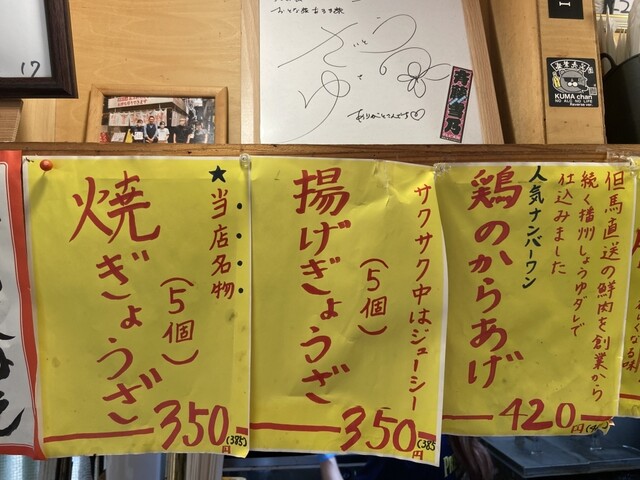 17
さいとう
ゆき乃
ありがとうございます
斎藤雪乃
KUMA chan
NO ALC NO LIFE
Reverse ver.
★当店名物
焼ぎょうざ
(5個)
350円(385)
サクサク中はジューシー
揚げぎょうざ
(5個)
350円(385)
但馬直送の鮮肉を創業から
続く播州しょうゆダレで
仕込みました
人気ナンバーワン
鶏のからあげ
420円